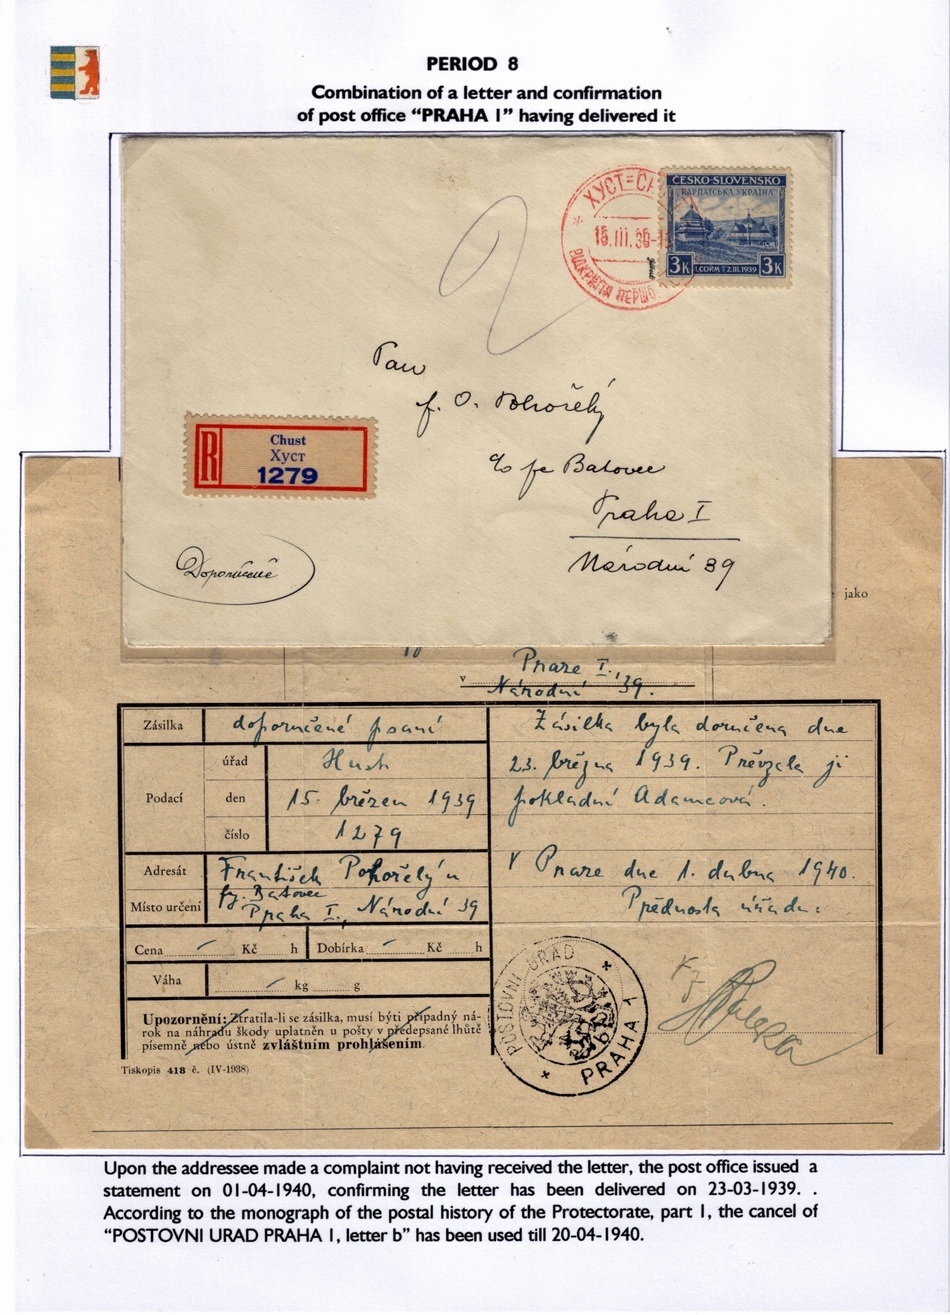 PERIOD 8
Combination of a letter and confirmation
of post office “PRAHA 1” having delivered it
ХУСТ=
15.III.39-
ВІДКРИТЯ ПЕРШО
ČESKO-SLOVENSKO
КАРПАТСЬКА УКРАЇНА
3K I. СОЙМ 2.III.1939 3K
Pan
f. O. Pohořelý
c/o fe Batovec
Praha I
Národní 39
R
Chust
Хуст
1279
Doporučeně
jako
v Praze I.,
Národní 39.
Zásilka doporučené psaní
Podací
úřad Hust
den 15. březen 1939
číslo 1279
Adresát František Pohořelý u
fy. Batovec
Místo určení Praha I., Národní 39
Cena Kč h Dobírka Kč h
Váha kg g
Upozornění: Ztratila-li se zásilka, musí býti případný ná-
rok na náhradu škody uplatněn u pošty v předepsané lhůtě
písemně nebo ústně zvláštním prohlášením.
Tiskopis 418 č. (IV-1938)
Zásilka byla doručena dne
23. března 1939. Převzala ji
pokladní Adamcová.
V Praze dne 1. dubna 1940.
Přednosta úřadu:
POŠTOVNÍ ÚŘAD
PRAHA 1
Upon the addressee made a complaint not having received the letter, the post office issued a
statement on 01-04-1940, confirming the letter has been delivered on 23-03-1939. .
According to the monograph of the postal history of the Protectorate, part 1, the cancel of
“POSTOVNI URAD PRAHA 1, letter b” has been used till 20-04-1940.